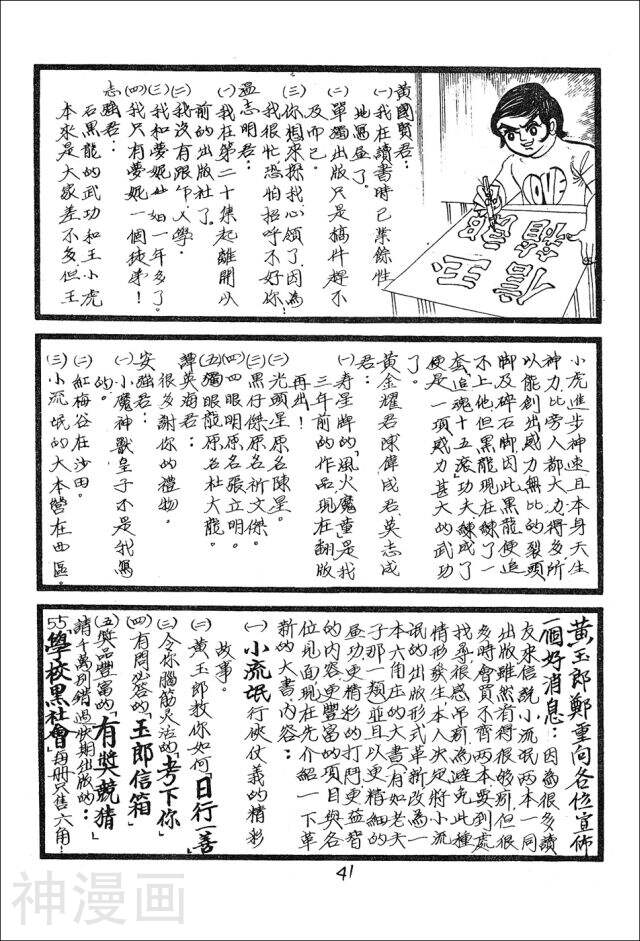 玉郎信箱
黃國賢君：
㈠我在讀書時已業餘性
地寫屋了。
㈡單獨出版只是稿件趕不
及而已。
㈢你想來探我心領了，因為
我很忙恐怕招呼不好你！
溫志明君：
㈠我在第二十集起離開以
前的出版社了。
㈡我沒有跟人學。
㈢我和夢妮一年多了。
㈣我只有夢妮一個徒弟！
志強君：
石黑龍的武功和王小虎
本來是大家差不多但王
小虎進步神速且本身天生
神力比旁人都大力得多所
以能創出威力無比的裂頭
脚及碎石脚因此黑龍便追
不上他但黑龍現在練了一
套「追魂十五滚」功夫練成了
便是一項威力甚大的武功
了。
黃金耀君陳偉成君英志成
君：
㈠寿星牌的「風火魔童」是我
三年前的作品現在翻版
再出！
㈡光頭星原名陳星。
㈢黑仔傑原名祈文傑。
㈣四眼明原名張立明。
㈤獨眼龍原名杜大龍。
譚英海君：
很多謝你的禮物。
安強君：
㈠小魔神獸皇子不是我寫
的。
㈡紅梅谷在沙田。
㈢小流氓的大本營在西區。
黃玉郎鄭重向各位宣佈
一個好消息：因為很多讀
友來信說小流氓兩本一同
出版雖然看得很够癮但很
多時會買不齊两本要到處
找尋很感吊癮為避免此種
情形發生本人決定將小流
氓的出版形式革新改為一
本六角庄的大書有如老夫
子那一類並且以更精细的
畫功更精彩的打鬥更益智
的内容更豐富的項目與各
位見面現在先介紹一下革
新的大書内容：
㈠小流氓行俠仗義的精彩
故事。
㈡黃玉郎教你如何「日行一善」
㈢令你腦筋灵活的「考下你」
㈣有問必答的「玉郎信箱」
㈤獎品豐富的「有獎競猜」
請千萬別錯過快期出版的：
55「學校黑社會」每册只售六角！
41
神漫画
LOVE